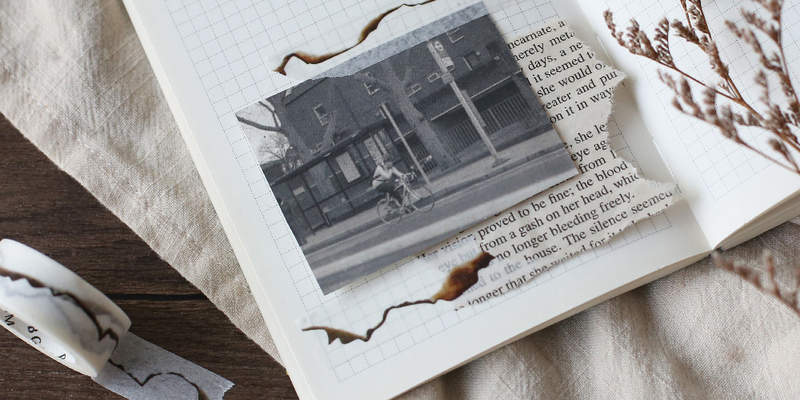 ncarnate, a
merely meta
days, a ne
it seemed
she would o
eater and pu
on it in way
, she le
eye ag
from
proved to be fine; the blood
from a gash on her head, whic
no longer bleeding freely.
to the house. The silence seemed
longer that she waited for